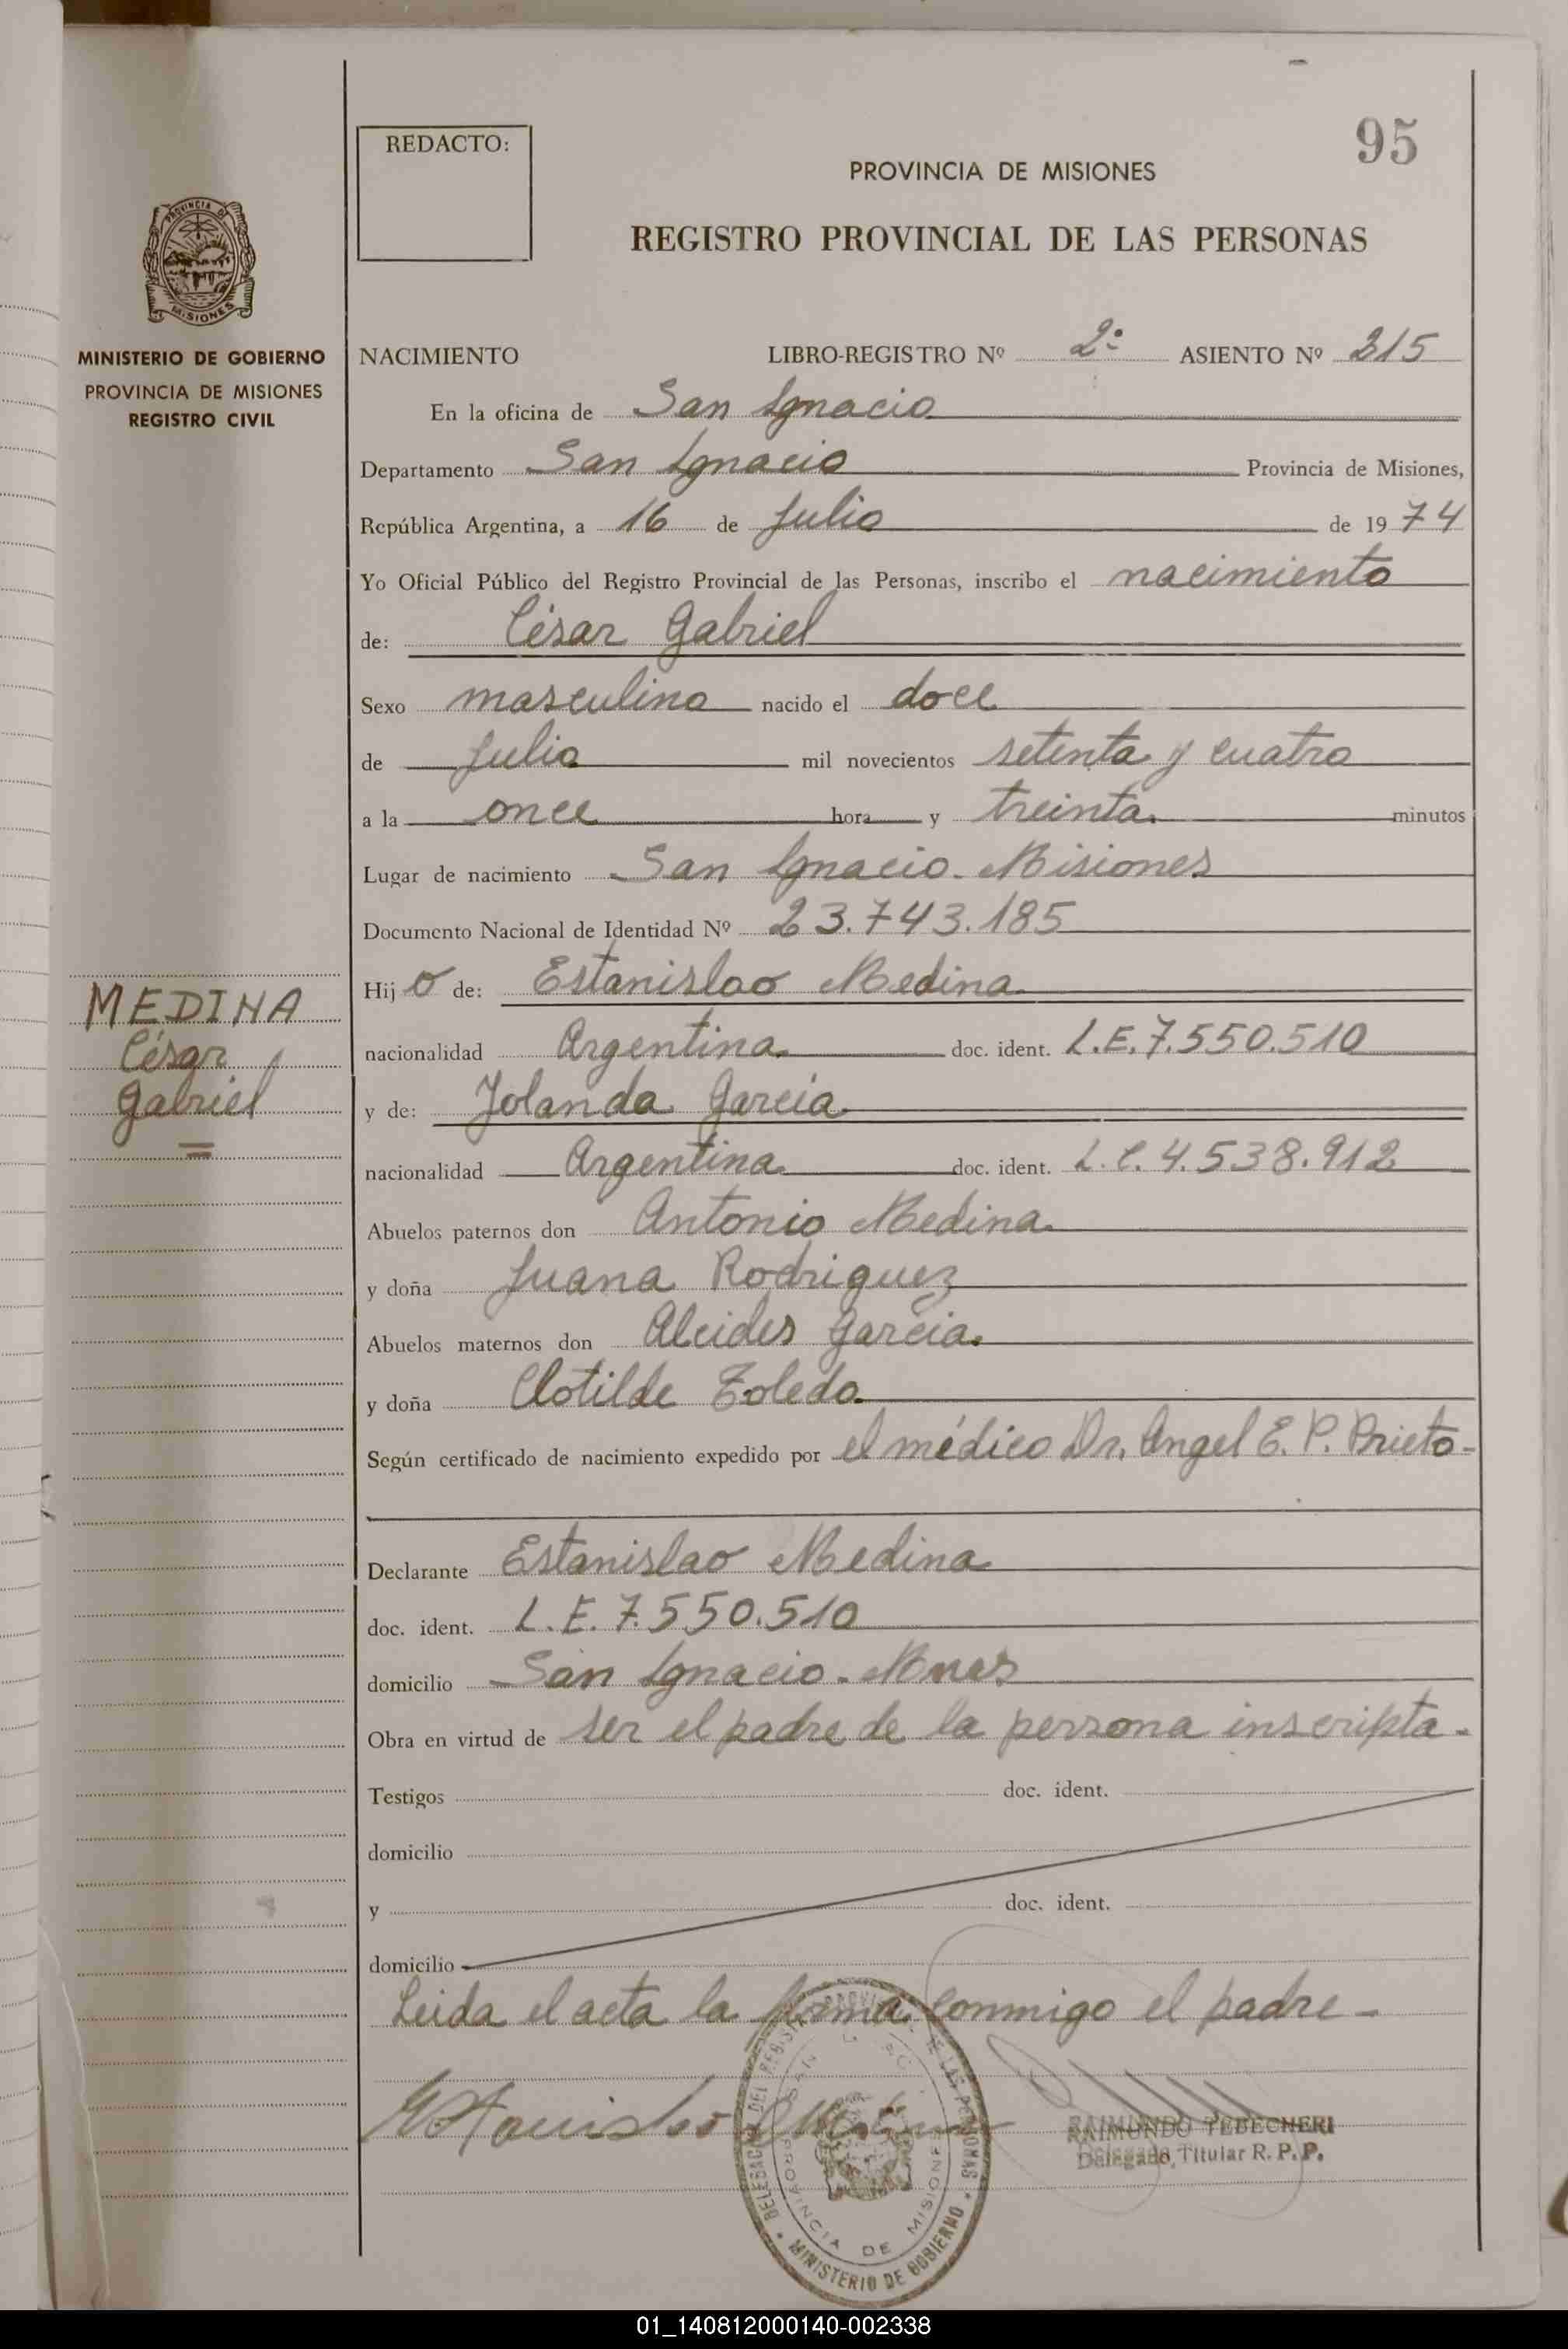 95
REDACTO:
PROVINCIA DE MISIONES
REGISTRO PROVINCIAL DE LAS PERSONAS
PROVINCIA DE
MISIONES
MINISTERIO DE GOBIERNO
PROVINCIA DE MISIONES
REGISTRO CIVIL
NACIMIENTO LIBRO-REGISTRO Nº 2º ASIENTO Nº 215
En la oficina de San Ignacio
Departamento San Ignacio Provincia de Misiones,
República Argentina, a 16 de Julio de 1974
Yo Oficial Público del Registro Provincial de las Personas, inscribo el nacimiento
de: César Gabriel
Sexo masculino nacido el doce
de Julio mil novecientos setenta y cuatro
a la once hora y treinta. minutos
Lugar de nacimiento San Ignacio - Misiones
Documento Nacional de Identidad Nº 23.743.185
Hijo de: Estanislao Medina
MEDINA
César
Gabriel
nacionalidad Argentina doc. ident. L.E. 7.550.510
y de: Yolanda Garcia
nacionalidad Argentina doc. ident. L.C. 4.538.912
Abuelos paternos don Antonio Medina
y doña Juana Rodriguez
Abuelos maternos don Alcides Garcia
y doña Clotilde Toledo
Según certificado de nacimiento expedido por el médico Dr. Angel E. P. Prieto -
Declarante Estanislao Medina
doc. ident. L.E. 7.550.510
domicilio San Ignacio - Mnes
Obra en virtud de ser el padre de la persona inscripta -
Testigos doc. ident.
domicilio
y doc. ident.
domicilio
Leida el acta la firma conmigo el padre -
Estanislao Medina
RAIMUNDO TEBECHERI
Delegado Titular R. P. P.
DELEGACION DEL REGISTRO PROVINCIAL DE LAS PERSONAS
PROVINCIA DE MISIONES
MINISTERIO DE GOBIERNO
01_140812000140-002338